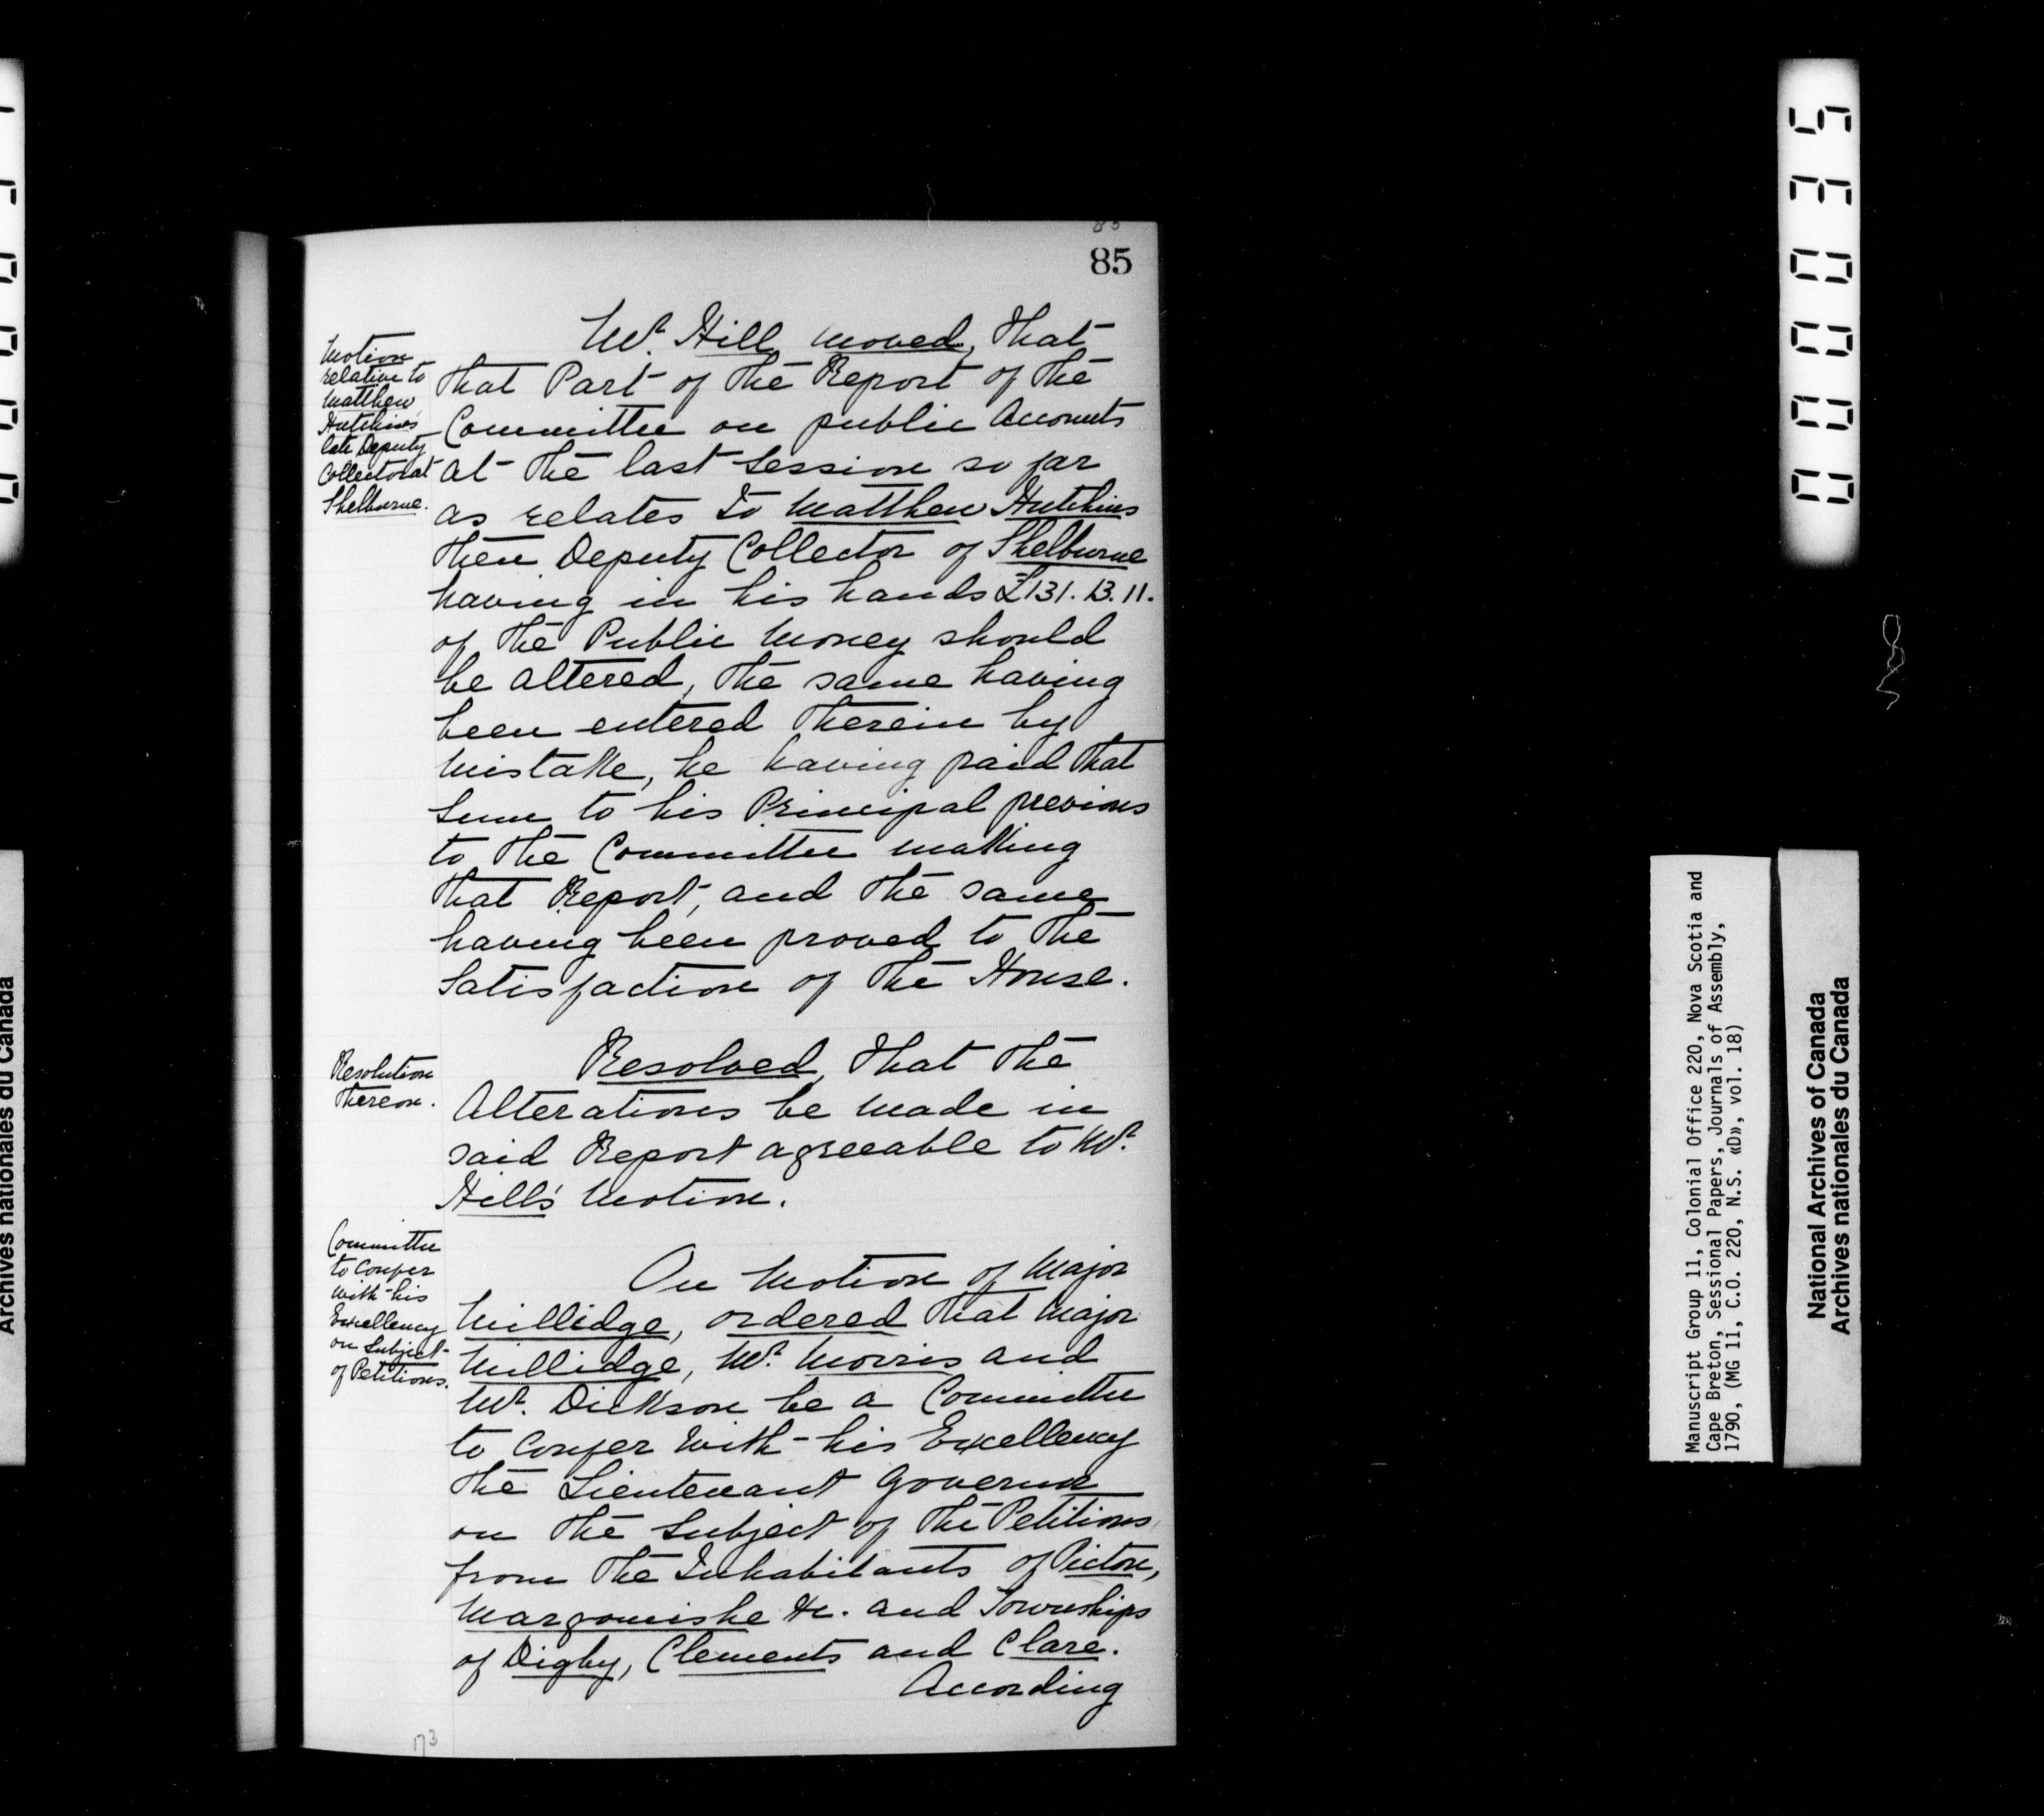 85
Motion
relative to
Matthew
Hutchins
late Deputy
Collector at
Shelburne.
Mr. Hill moved, that
that Part of the Report of the
Committee on public Accounts
at the last Session so far
as relates to Matthew Hutchins
then Deputy Collector of Shelburne
having in his hands £131. 13. 11.
of the Public Money should
be altered, the same having
been entered therein by
Mistake, he having paid that
Sum to his Principal previous
to the Committee making
that Report, and the same
having been proved to the
Satisfaction of the House.
Resolution
thereon.
Resolved, that the
Alterations be made in
said Report agreeable to Mr.
Hill's Motion.
Committee
to Confer
with his
Excellency
on Subject
of Petitions.
On Motion of Major
Millidge, ordered that Major
Millidge, Mr. Morris and
Mr. Dickson be a Committee
to Confer with his Excellency
the Lieutenant Governor
on the Subject of the Petitions
from the Inhabitants of Pictou,
Margomishe &c. and Townships
of Digby, Clements and Clare.
According
173
00035
Manuscript Group 11, Colonial Office 220, Nova Scotia and
Cape Breton, Sessional Papers, Journals of Assembly,
1790, (MG 11, C.O. 220, N.S. «D», vol. 18)
National Archives of Canada
Archives nationales du Canada
Archives nationales du Canada